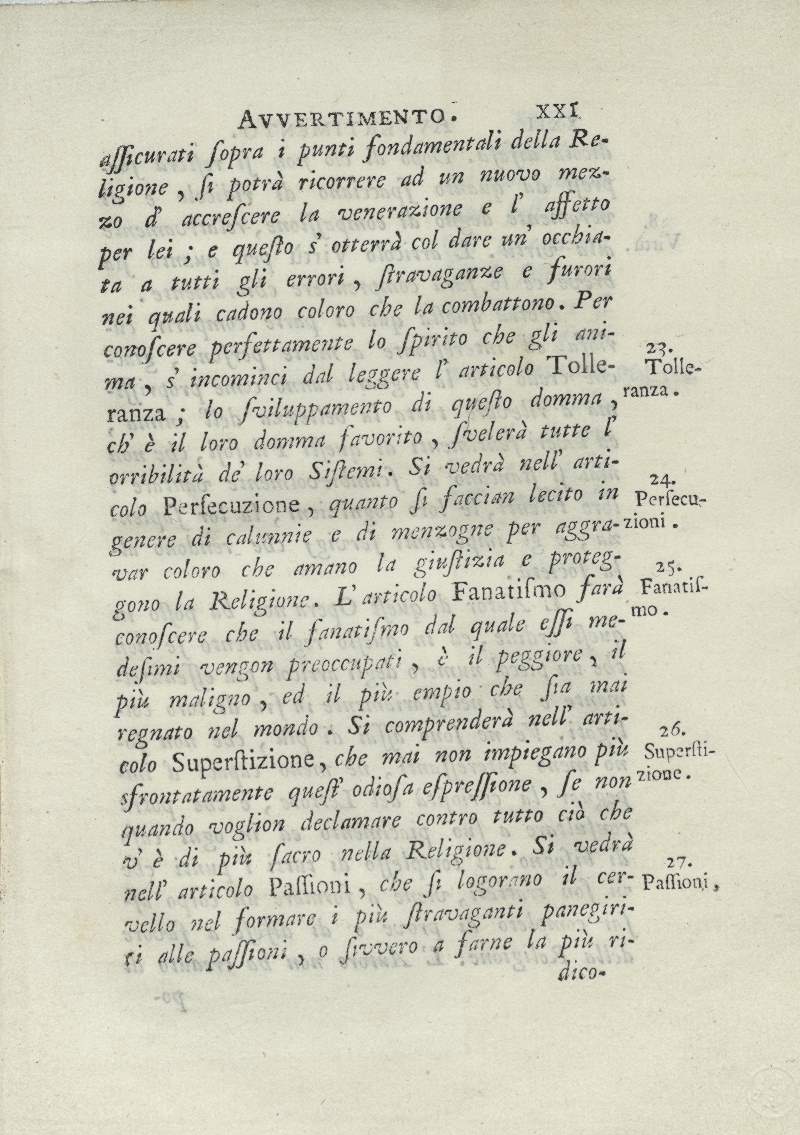 AVVERTIMENTO. XXI
aſſicurati ſopra i punti fondamentali della Re-
ligione, ſi potrà ricorrere ad un nuovo mez-
zo d' accreſcere la venerazione e l' affetto
per lei; e queſto s' otterrà col dare un' occhia-
ta a tutti gli errori, ſtravaganze e furori
nei quali cadono coloro che la combattono. Per
conoſcere perfettamente lo ſpirito che gli ani-
23.
ma, s' incominci dal leggere l' articolo Tolle-
Tolle-
ranza; lo ſviluppamento di queſto domma,
ranza.
ch' è il loro domma favorito, ſvelerà tutte l'
orribilità de' loro Siſtemi. Si vedrà nell' arti-
24.
colo Perſecuzione, quanto ſi faccian lecito in
Perſecu-
genere di calunnie e di menzogne per aggra-
zioni.
var coloro che amano la giuſtizia e proteg-
25.
gono la Religione. L' articolo Fanatiſmo farà
Fanatiſ-
conoſcere che il fanatiſmo dal quale eſſi me-
mo.
deſimi vengon preoccupati, è il peggiore, il
più maligno, ed il più empio che ſia mai
regnato nel mondo. Si comprenderà nell' arti-
26.
colo Superſtizione, che mai non impiegano più
Superſti-
sfrontatamente queſt' odioſa eſpreſſione, ſe non
zione.
quando voglion declamare contro tutto ciò che
v' è di più ſacro nella Religione. Si vedrà
27.
nell' articolo Paſſioni, che ſi logorano il cer-
Paſſioni,
vello nel formare i più ſtravaganti panegiri-
ci alle paſſioni, o ſivvero a farne la più ri-
dico-